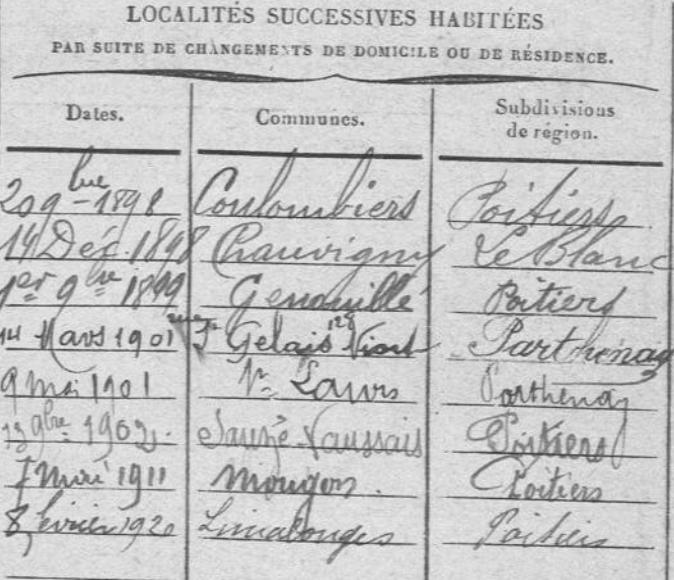 LOCALITÉS SUCCESSIVES HABITÉES
PAR SUITE DE CHANGEMENTS DE DOMICILE OU DE RÉSIDENCE.
Dates. Communes. Subdivisions
de région.
20 9bre 1898 Coulombiers Poitiers
14 Déc. 1898 Chauvigny Le Blanc
1er 9bre 1899 Genouillé Poitiers
14 Mars 1901 St Gelais Niort Parthenay
9 mai 1901 Laurs Parthenay
13 9bre 1902 Sauzé-Vaussais Poitiers
7 1911 Mougon. Poitiers
8 février 1920 Limalonges Poitiers